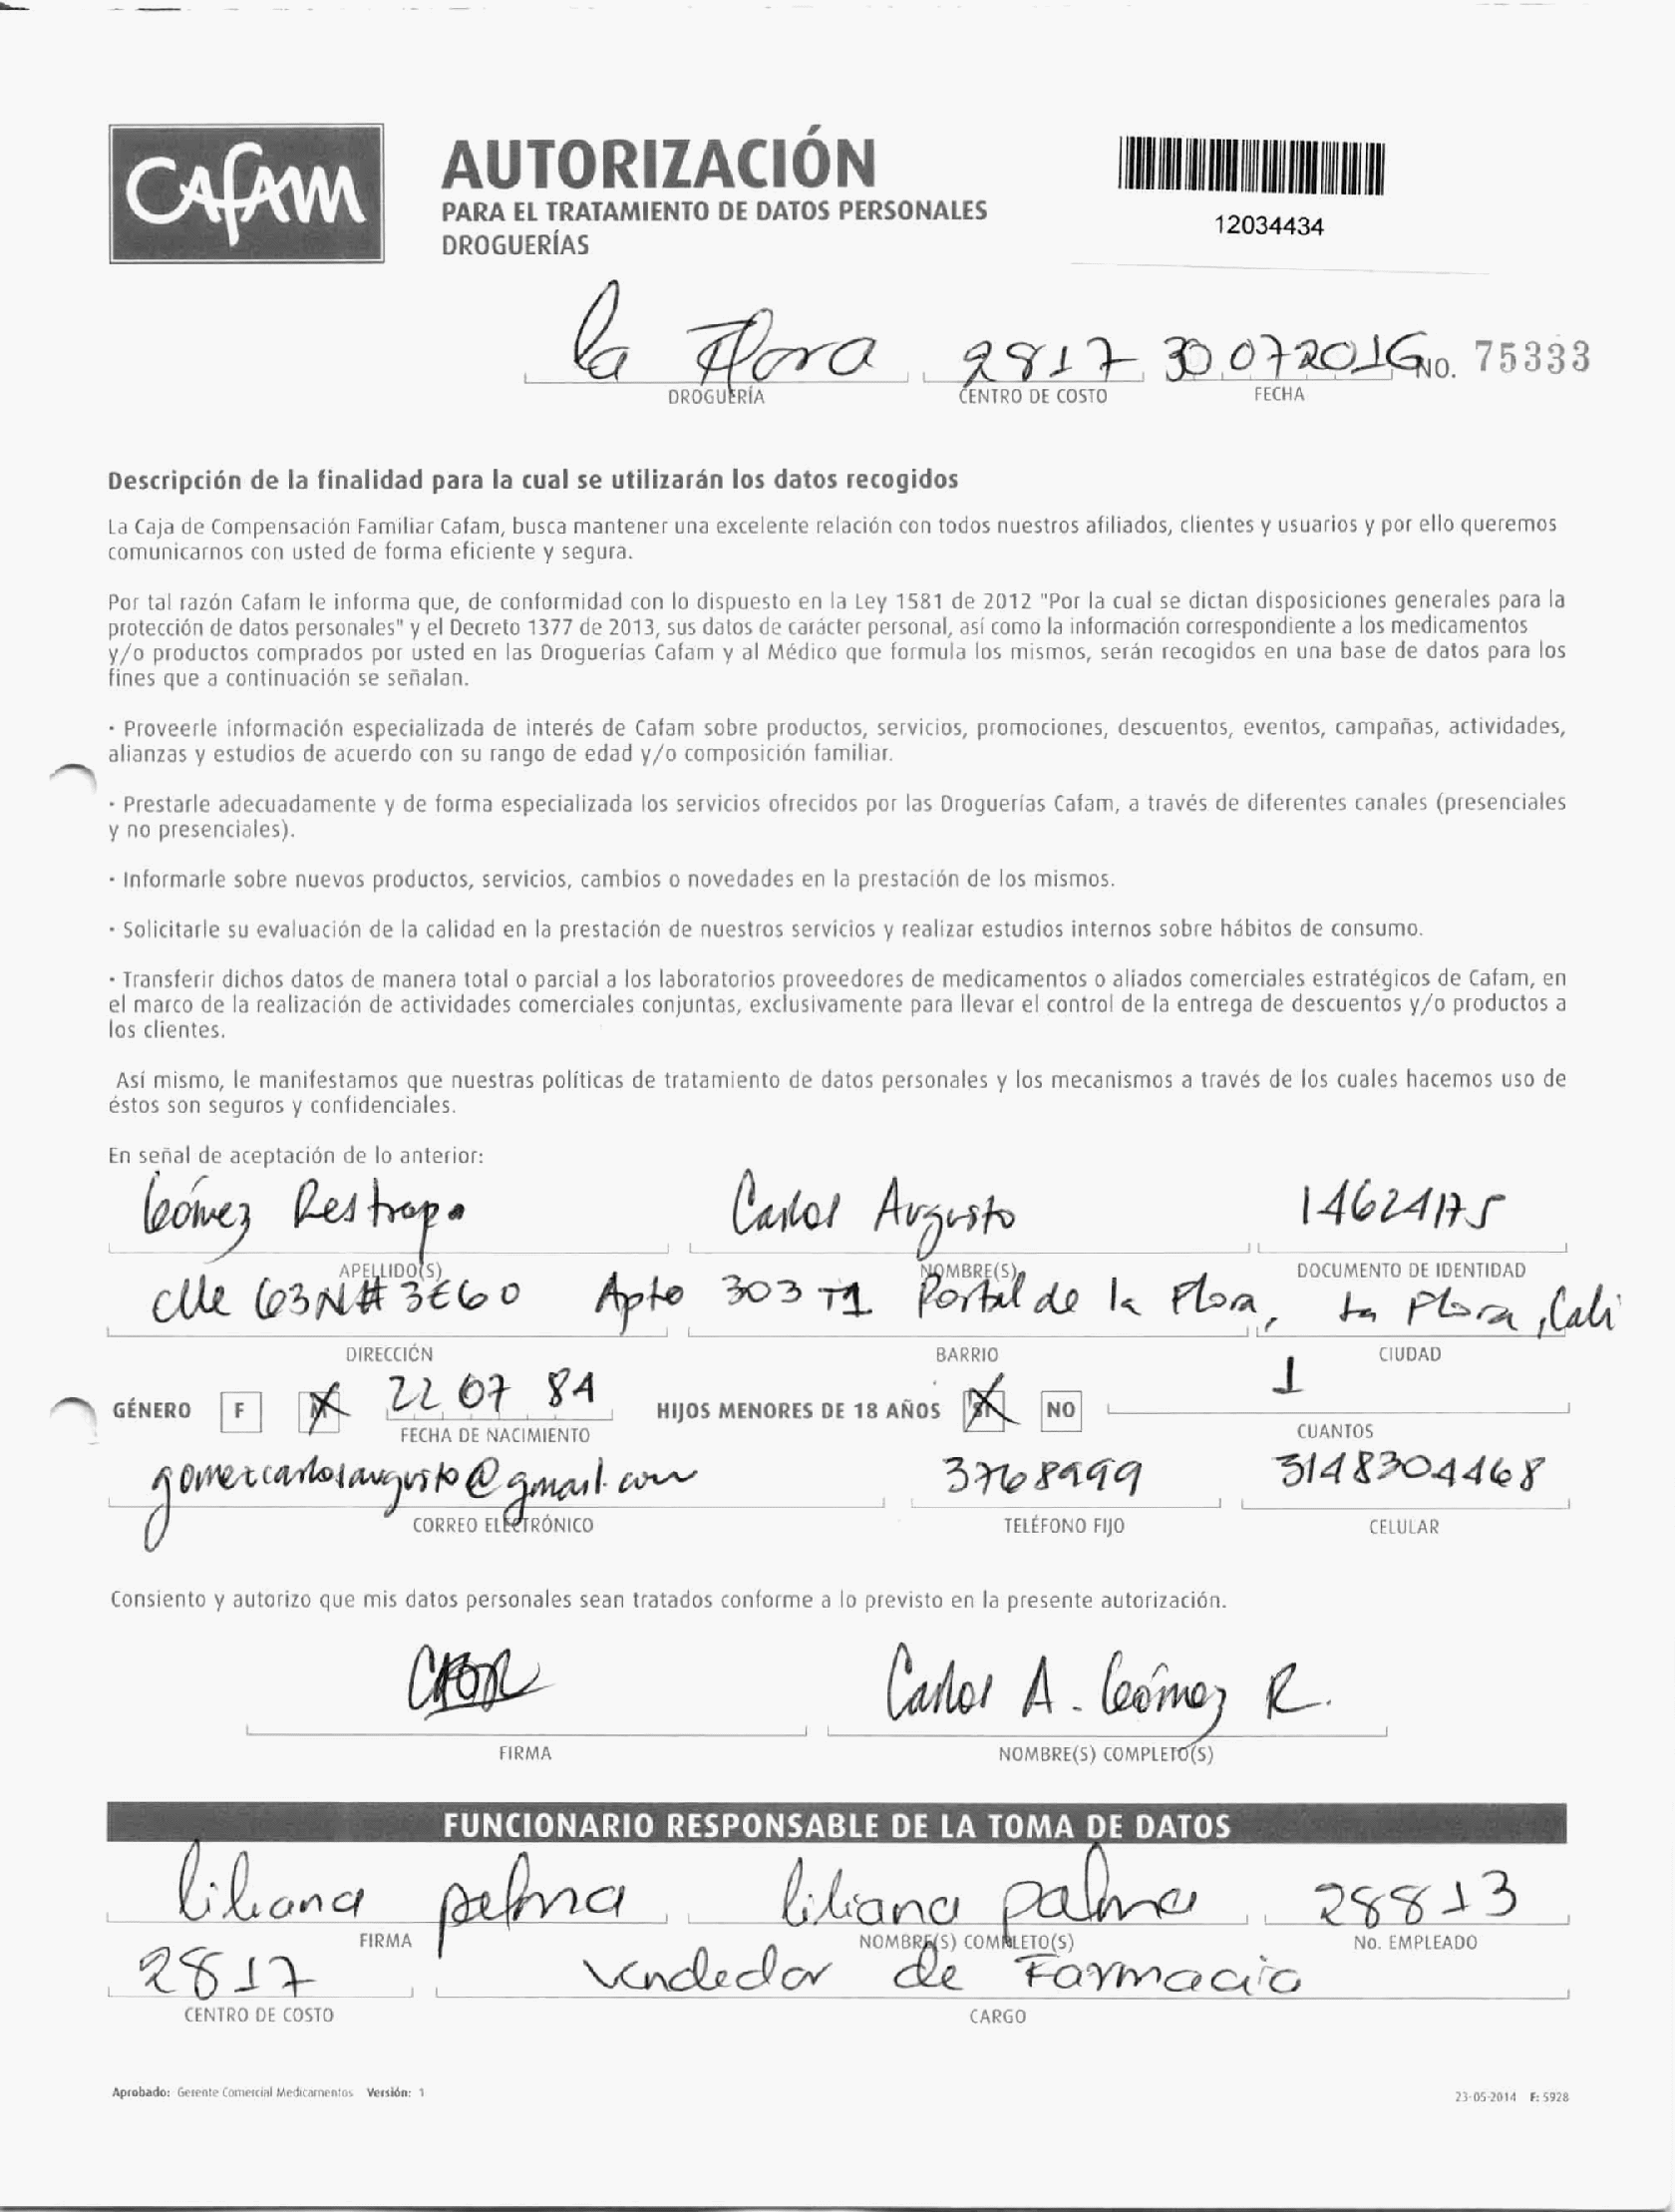 CAFAM
AUTORIZACIÓN
PARA EL TRATAMIENTO DE DATOS PERSONALES
DROGUERÍAS
12034434
la Flora 2817 30 07 2016 No. 75333
DROGUERÍA CENTRO DE COSTO FECHA
Descripción de la finalidad para la cual se utilizarán los datos recogidos
La Caja de Compensación Familiar Cafam, busca mantener una excelente relación con todos nuestros afiliados, clientes y usuarios y por ello queremos
comunicarnos con usted de forma eficiente y segura.
Por tal razón Cafam le informa que, de conformidad con lo dispuesto en la Ley 1581 de 2012 "Por la cual se dictan disposiciones generales para la
protección de datos personales" y el Decreto 1377 de 2013, sus datos de carácter personal, así como la información correspondiente a los medicamentos
y/o productos comprados por usted en las Droguerías Cafam y al Médico que formula los mismos, serán recogidos en una base de datos para los
fines que a continuación se señalan.
· Proveerle información especializada de interés de Cafam sobre productos, servicios, promociones, descuentos, eventos, campañas, actividades,
alianzas y estudios de acuerdo con su rango de edad y/o composición familiar.
· Prestarle adecuadamente y de forma especializada los servicios ofrecidos por las Droguerías Cafam, a través de diferentes canales (presenciales
y no presenciales).
· Informarle sobre nuevos productos, servicios, cambios o novedades en la prestación de los mismos.
· Solicitarle su evaluación de la calidad en la prestación de nuestros servicios y realizar estudios internos sobre hábitos de consumo.
· Transferir dichos datos de manera total o parcial a los laboratorios proveedores de medicamentos o aliados comerciales estratégicos de Cafam, en
el marco de la realización de actividades comerciales conjuntas, exclusivamente para llevar el control de la entrega de descuentos y/o productos a
los clientes.
Así mismo, le manifestamos que nuestras políticas de tratamiento de datos personales y los mecanismos a través de los cuales hacemos uso de
éstos son seguros y confidenciales.
En señal de aceptación de lo anterior:
Gómez Restrepo Carlos Augusto 14624175
APELLIDO(S) NOMBRE(S) DOCUMENTO DE IDENTIDAD
Clle 63N# 3E60 Apto 303 T1 Portal de la Flora, La Flora, Cali
DIRECCIÓN BARRIO CIUDAD
GÉNERO F M 22 07 84 HIJOS MENORES DE 18 AÑOS SI NO 1
FECHA DE NACIMIENTO CUANTOS
gomezcarlosaugusto@gmail.com 3768999 3148304468
CORREO ELECTRÓNICO TELÉFONO FIJO CELULAR
Consiento y autorizo que mis datos personales sean tratados conforme a lo previsto en la presente autorización.
Carlos A. Gómez R.
FIRMA NOMBRE(S) COMPLETO(S)
FUNCIONARIO RESPONSABLE DE LA TOMA DE DATOS
liliana palma liliana palma 28813
FIRMA NOMBRE(S) COMPLETO(S) No. EMPLEADO
2817 Vendedor de Farmacia
CENTRO DE COSTO CARGO
Aprobado: Gerente Comercial Medicamentos Versión: 1 23-05-2014 F: 5928